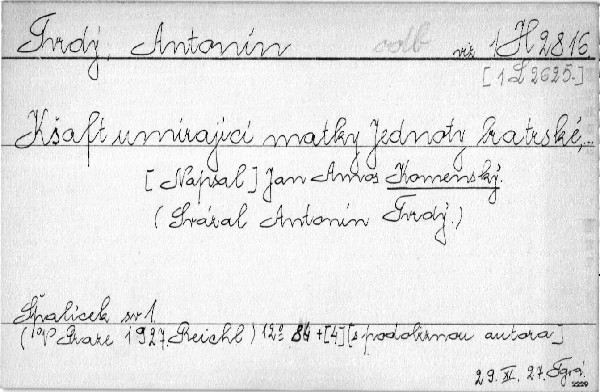 Tvrdý, Antonín odb viz 1 H 2816.
[1 L 2625.]
Kšaft umírající matky Jednoty bratrské,..
[Napsal] Jan Amos Komenský.
(Svázal Antonín Tvrdý.)
Špalíček sv 1.
(V Praze 1927. Reichl) 12° 84 + [4] [s podobiznou autora]
29. XI. 27.